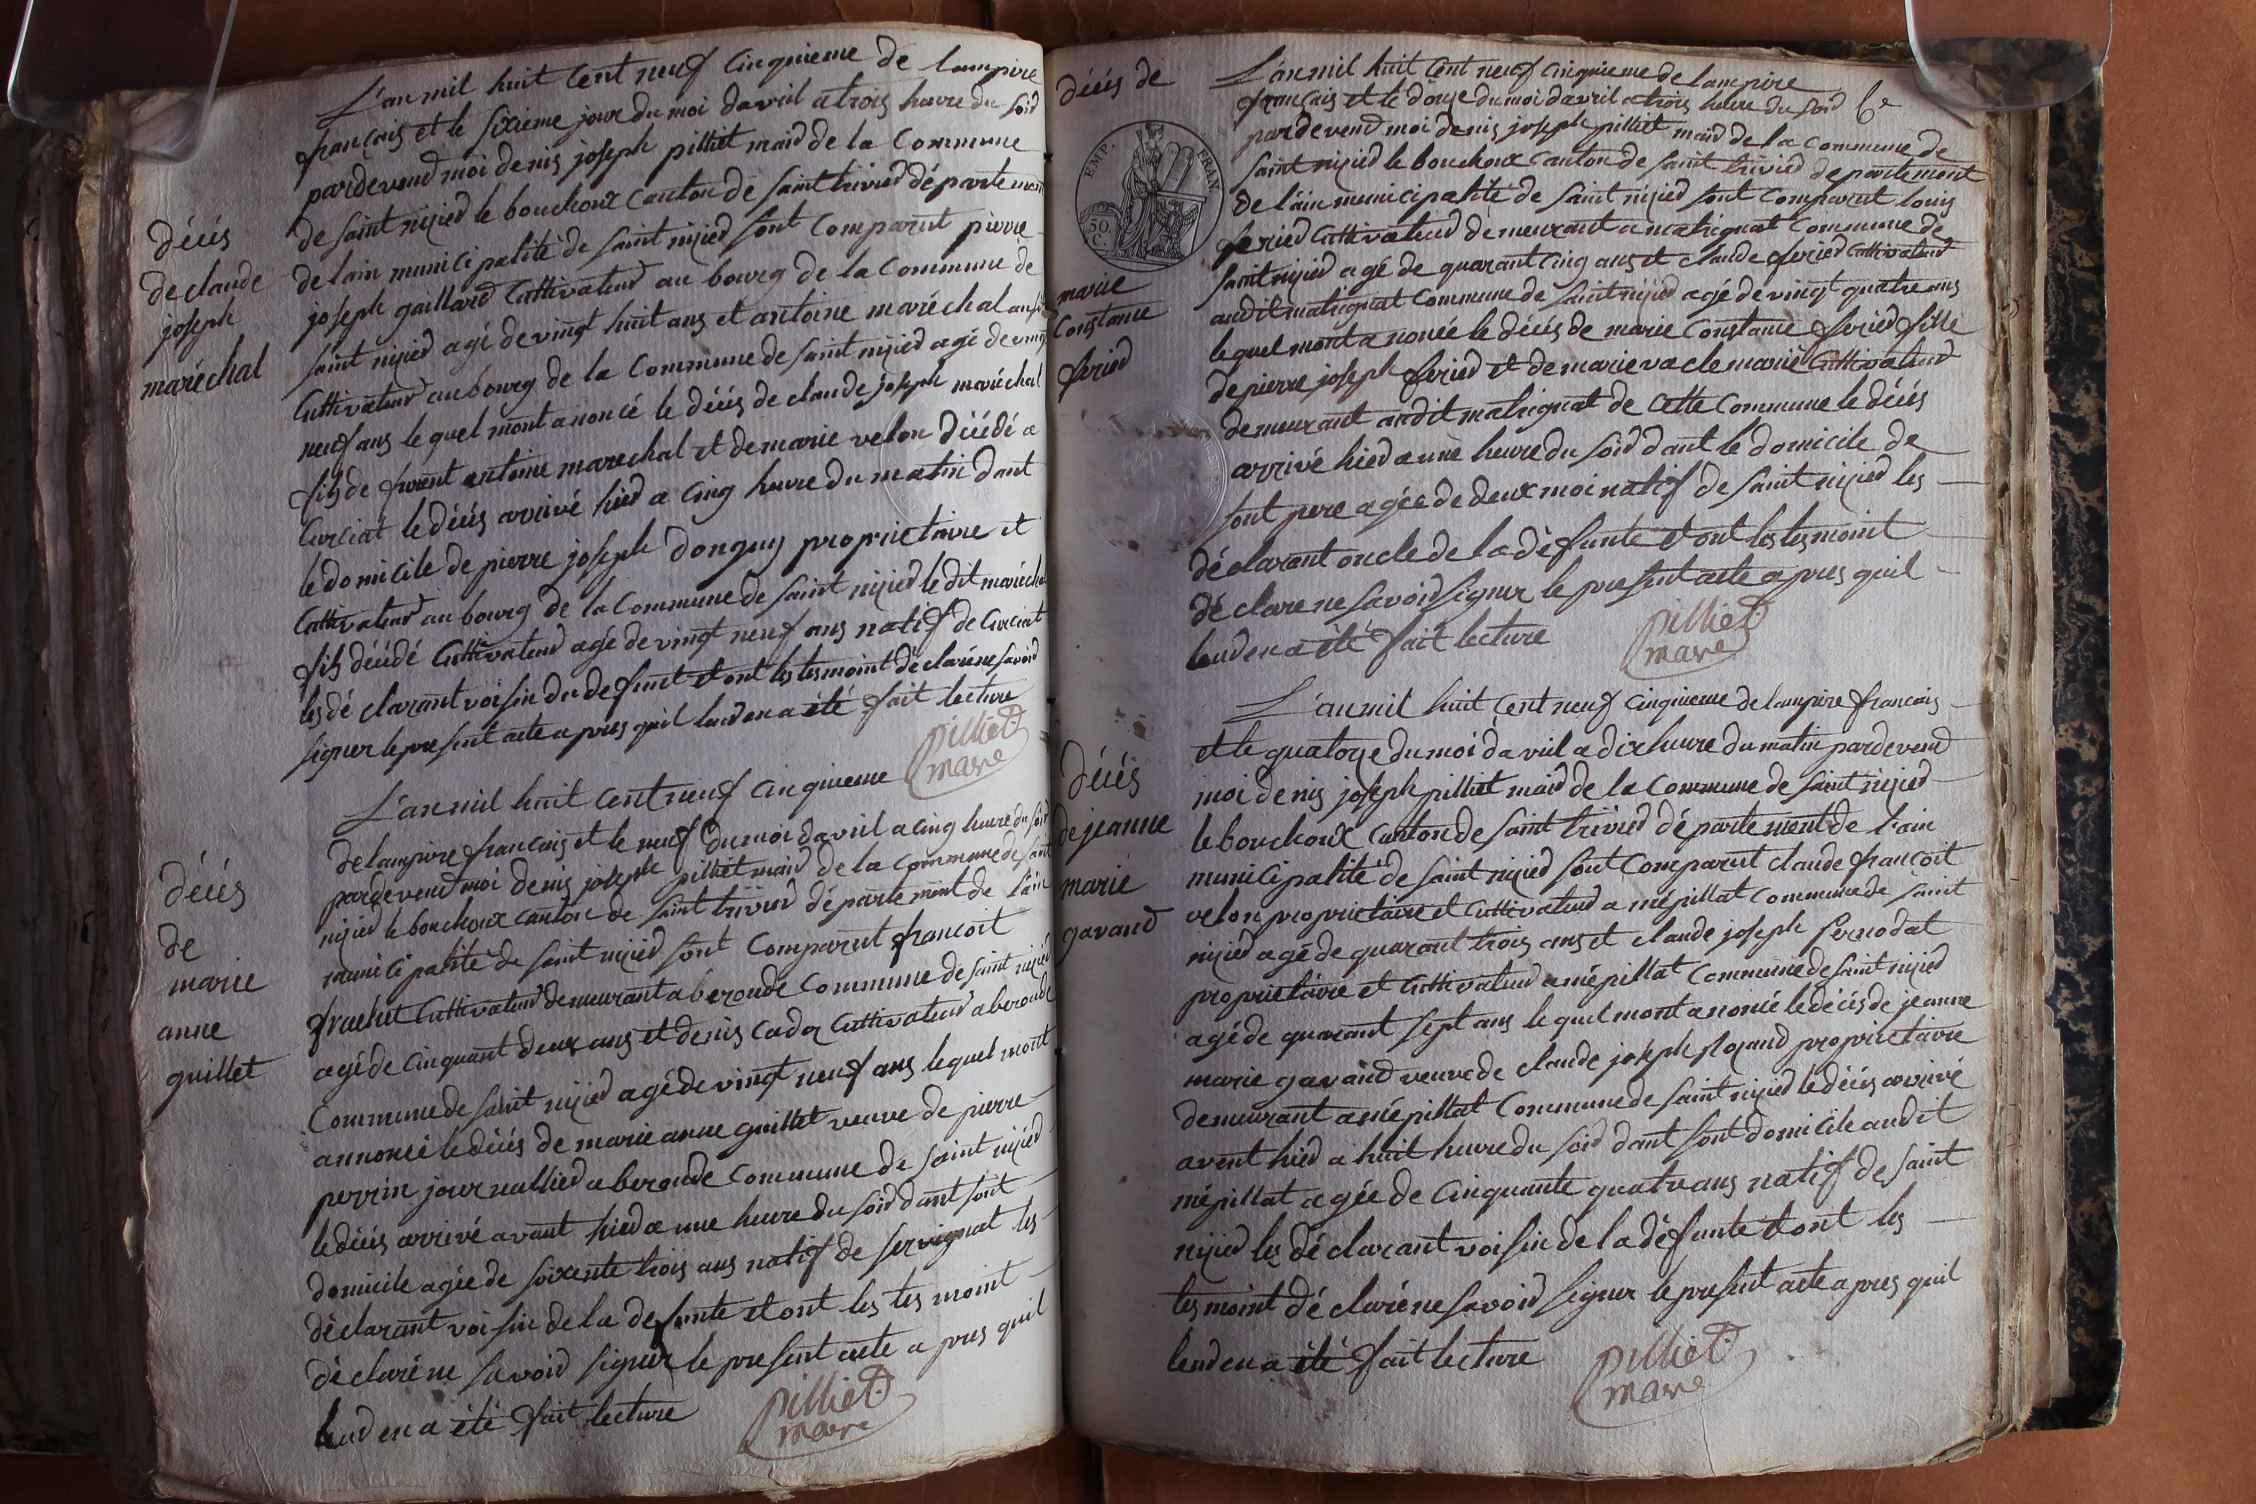 L'an mil huit cent neuf cinquieme de lampire
français et le sixieme jour du moi davril a trois heure du soir
pardevend moi denis joseph pilliet maid de la Commune
de saint nizied le bouchoux canton de saint trivied département
de lain municipalité de saint nizied sont comparut pierre
joseph gaillard Cultivateur au bourg de la Commune de
saint nizied agé de vingt huit ans et antoine maréchal aussi
Cultivateur au bourg de la Commune de saint nizied agé de vingt
neuf ans lequel mont anoncé le décés de claude joseph maréchal
fils de antoine marechal et de marie velon décédé a
Curciat le décés arrivé hied a cinq heure du matin dant
le domicile de pierre joseph donguy proprietaire et
Cultivateur au bourg de la Commune de saint nizied le dit maréchal
fils décédé Cultivateur agé de vingt neuf ans natif de Curciat
les déclarant voisin du defunt et ont les tesmoint déclaréne savoid
signer le present acte apres quil leud en a été fait lecture
pilliet
mare
décés
de claude
joseph
maréchal
L'an mil huit cent neuf cinquieme
de lampire français et le neuf du moi davril a cinq heure du soir
pardevend moi denis joseph pilliet maid de la commune de saint
nizied le bouchoux canton de saint trivied département de l'ain
municipalité de saint nizied sont Comparut francoit
frachet Cultivateur demeurant a beroude Commune de saint nizied
agé de cinquant deux ans et denis cadoz Cultivateur a beroude
Commune de saint nizied agé de vingt neuf ans lequel mont
annoncé le décés de marie anne guillet veuve de pierre
perrin journallied a beroude Commune de saint nizied
le décés arrivé avant hied a une heure du soid dant sont
domicile agée de soixente trois ans natif de servignat les
déclarant voisin de la defunte et ont les tes moint
déclaréne savoid signer le present acte a pres quil
leud en a été fait lecture
pilliet
mare
décés
de
marie
anne
guillet
décés de
EMP. FRAN
50.
C.
marie
Constance
feried
L'an mil huit cent neuf cinquieme de lampire
français et le douze du moi davril a trois heure du soid 6e
pardevend moi denis joseph pilliet maid de la commune de
saint nizied le bouchoux canton de saint trivied departement
de l'ain municipalité de saint nizied sont comparut louis
feried Cultivateud demeurant a matrignat Commune de
saint nizied agé de quarant cinq ans et claude feried Cultivateud
audit matrignat Commune de saint nizied agé de vingt quatre ans
lequel mont a noncée le décés de marie Constance feried fille
de pierre joseph feried et de marie vacle marié Cultivateud
demeurant audit matrignat de cette commune le décés
arrivé hied a une heure du soid dant le domicile de
sont pere agée de deux moi natif de saint nizied les
déclarant oncle de la défunte et ont les tesmoint
déclare ne savoid signer le present acte a pres quil
leud en a été fait lecture
pilliet
mare
L'an mil huit cent neuf cinquieme de lampire francais
et le quatorze du moi davril a dix heure du matin pardevend
moi denis joseph pilliet maid de la Commune de saint nizied
le bouchoux Canton de saint trivied département de l'ain
municipalité de saint nizied sont comparut claude francoit
velon proprietaire et Cultivateud a mépillat commune de saint
nizied agé de quarant trois ans et claude joseph pernodat
proprietaire et Cultivateud a mépillat Commune de saint nizied
agé de quarant sept ans lequel mont anoncé le décés de jeanne
marie gavand veuve de claude joseph proprietaire
demeurant a mépillat Commune de saint nizied le décés arrivé
avent hied a huit heure du soid dant sont domicile audit
mépillat agée de cinquante quatr ans natif de saint
nizied les déclarant voisin de la défunte et ont les
tesmoint déclaréne savoid signer le present acte a pres quil
leud en a été fait lecture
pilliet
mare
Décés
de jeanne
marie
gavand